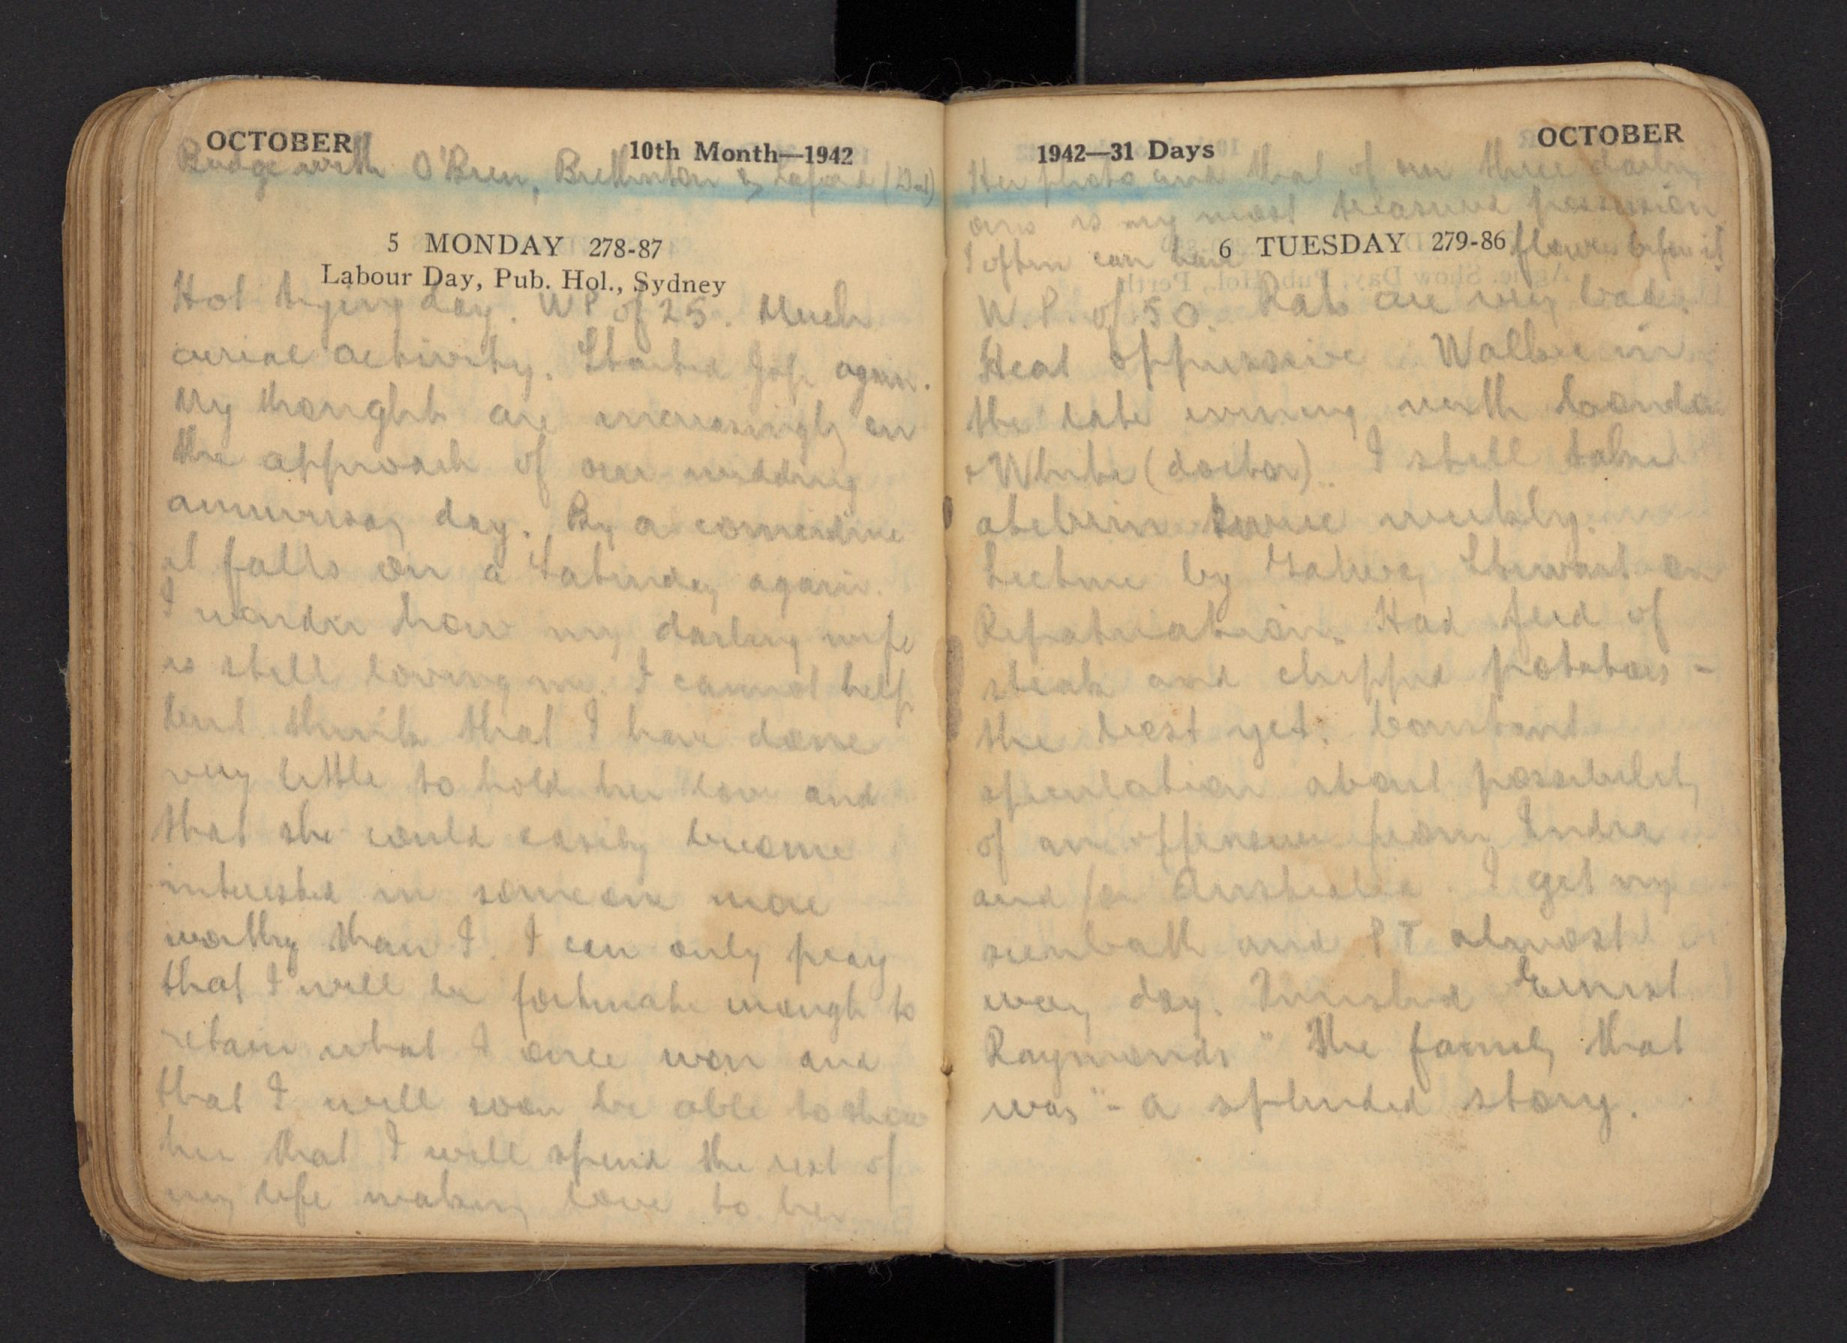 OCTOBER 10th Month—1942
Bridge with O'Brien, Brettnton &
5 MONDAY 278-87
Labour Day, Pub. Hol., Sydney
Hot trying day. WP of 25. Much
aerial activity. Started Jap. again.
My thoughts are increasingly on
the approach of our wedding
anniversary day. By a coincidence
it falls on a Saturday again.
I wonder how my darling wife
is still loving me. I cannot help
but think that I have done
very little to hold her love and
that she could easily become
interested in someone more
worthy than I. I can only pray
that I will be fortunate enough to
retain what I once won and
that I will soon be able to show
her that I will spend the rest of
my life making love to her.
1942—31 Days OCTOBER
Her photo and that of our three darling
ones is my most treasured possession.
I often can have flowers before it.
6 TUESDAY 279-86
W.P. of 50. Rats are very bad.
Heat oppressive. Walk in
the late evening with
& White (doctor). I still take
atebrin twice weekly.
Lecture by Stewart on
Repatriation. Had feed of
steak and chipped potatoes -
the best yet. Constant
speculation about possibility
of an offensive from India
and/or Australia. I get my
sunbath and PT almost
every day. Finished Ernest
Raymonds "The family that
was" - a splendid story.